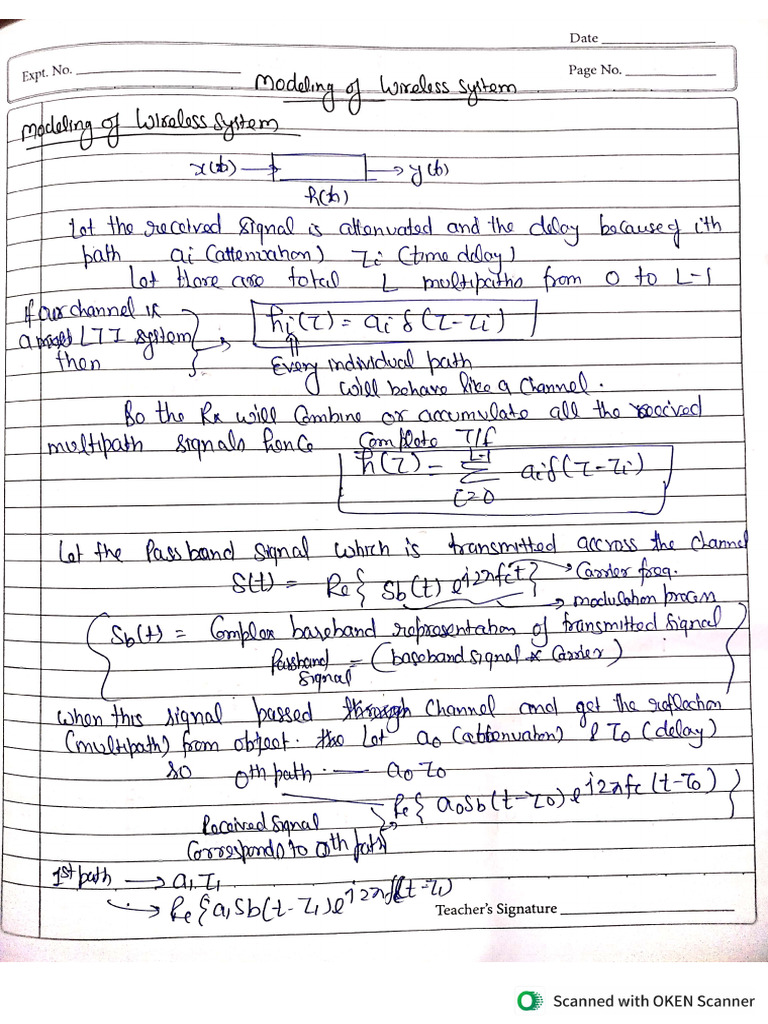 Date
Expt. No.
Page No.
Modeling of Wireless System
Modeling of Wireless System
x(t) → → y(t)
h(t)
Let the received signal is attenuated and the delay because of ith
path ai (attenuation) τi (time delay)
Let there are total L multipaths from 0 to L-1
If our channel is
a LTI system
then
hi(τ) = ai δ(τ-τi)
Every individual path
will behave like a channel.
So the Rx will combine or accumulate all the received
multipath signals hence Complete T/f
h(τ) = Σ_{i=0}^{L-1} ai δ(τ-τi)
Let the Passband signal which is transmitted accross the channel
S(t) = Re{ Sb(t) e^{j2πfct} } → Carrier freq.
→ modulation process
Sb(t) = Complex baseband representation of transmitted signal
Passband Signal = (baseband signal * Carrier)
When this signal passed through channel and get the reflection
(multipath) from object. Let a0 (attenuation) & τ0 (delay)
so 0th path — a0 τ0
Re{ a0 Sb(t-τ0) e^{j2πfc(t-τ0)} }
Received signal
corresponds to 0th path
1st path → a1 τ1
→ Re{ a1 Sb(t-τ1) e^{j2πfc(t-τ1)}
Teacher's Signature
Scanned with OKEN Scanner